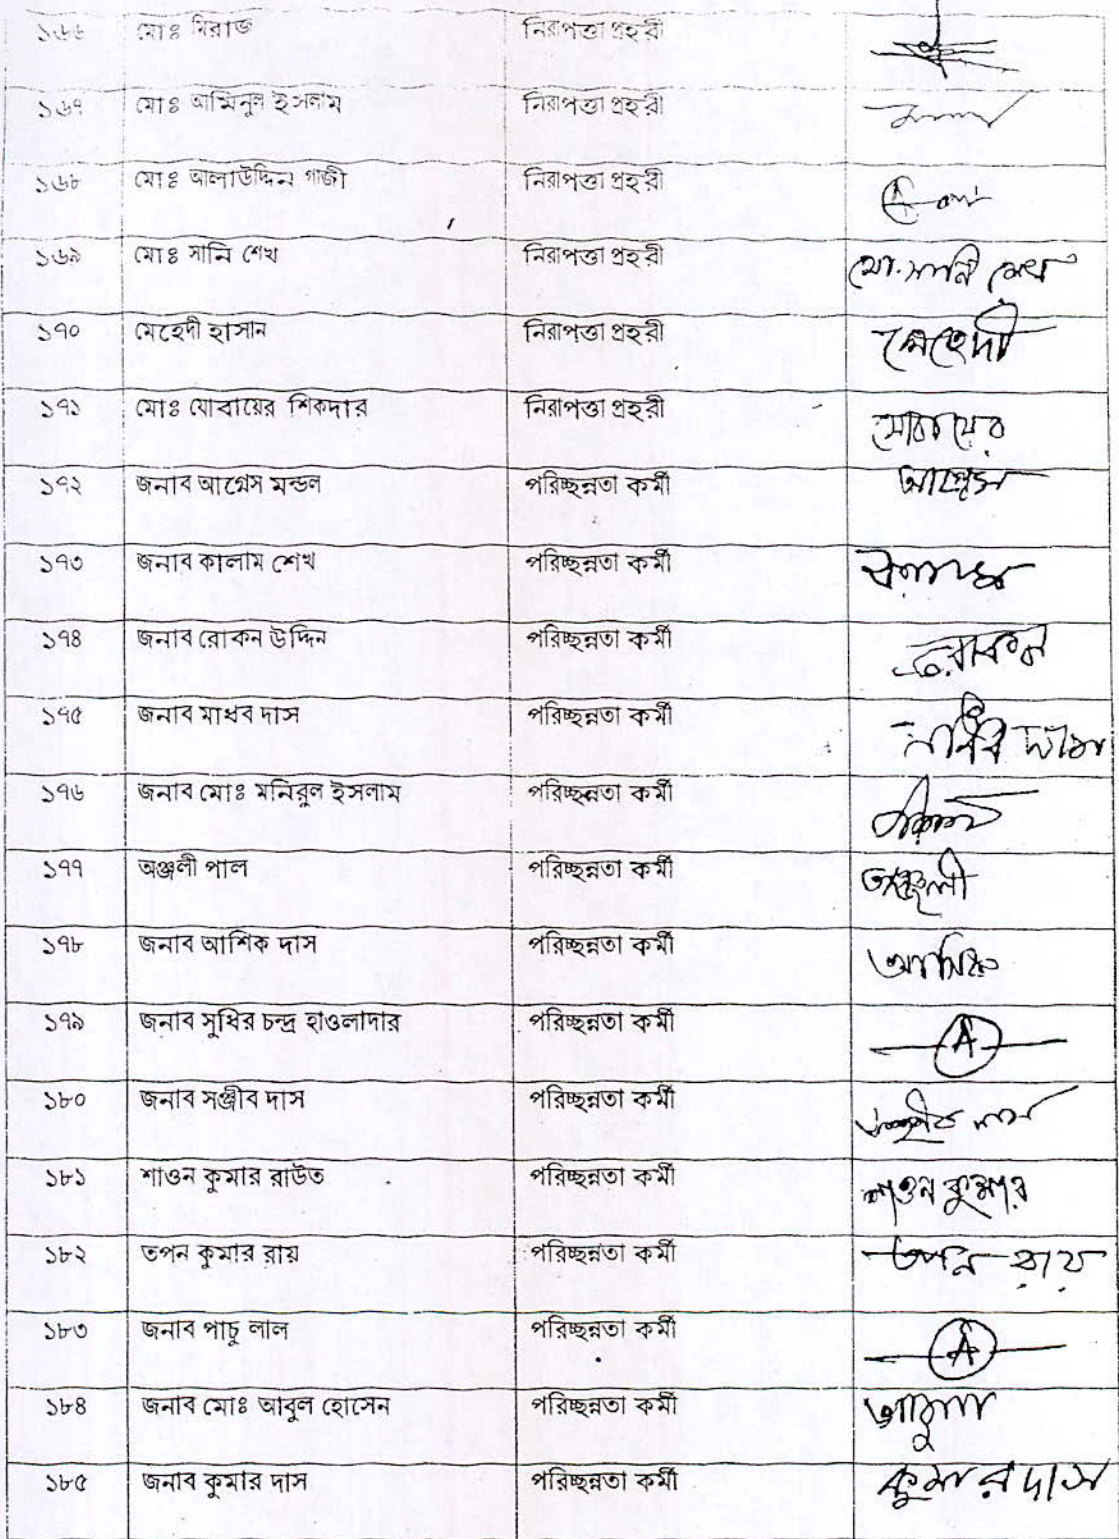 ১৬৬ মোঃ মিরাজ নিরাপত্তা প্রহরী
১৬৭ মোঃ আমিনুল ইসলাম নিরাপত্তা প্রহরী
১৬৮ মোঃ আলাউদ্দিন গাজী নিরাপত্তা প্রহরী
১৬৯ মোঃ সানি শেখ নিরাপত্তা প্রহরী মো. সানী শেখ
১৭০ মেহেদী হাসান নিরাপত্তা প্রহরী মেহেদী
১৭১ মোঃ যোবায়ের শিকদার নিরাপত্তা প্রহরী
১৭২ জনাব আগ্নেস মন্ডল পরিচ্ছন্নতা কর্মী আগ্নেস
১৭৩ জনাব কালাম শেখ পরিচ্ছন্নতা কর্মী
১৭৪ জনাব রোকন উদ্দিন পরিচ্ছন্নতা কর্মী রোকন
১৭৫ জনাব মাধব দাস পরিচ্ছন্নতা কর্মী
১৭৬ জনাব মোঃ মনিরুল ইসলাম পরিচ্ছন্নতা কর্মী
১৭৭ অঞ্জলী পাল পরিচ্ছন্নতা কর্মী অঞ্জলী
১৭৮ জনাব আশিক দাস পরিচ্ছন্নতা কর্মী আসিক
১৭৯ জনাব সুধির চন্দ্র হাওলাদার পরিচ্ছন্নতা কর্মী A
১৮০ জনাব সঞ্জীব দাস পরিচ্ছন্নতা কর্মী সঞ্জীব দাস
১৮১ শাওন কুমার রাউত পরিচ্ছন্নতা কর্মী শাওন কুমার
১৮২ তপন কুমার রায় পরিচ্ছন্নতা কর্মী তপন রায়
১৮৩ জনাব পাচু লাল পরিচ্ছন্নতা কর্মী A
১৮৪ জনাব মোঃ আবুল হোসেন পরিচ্ছন্নতা কর্মী আবুল
১৮৫ জনাব কুমার দাস পরিচ্ছন্নতা কর্মী কুমার দাস